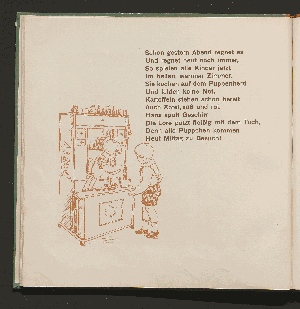 Schon gestern Abend regnet es
Und regnet heut noch immer,
So spielen alle Kinder jetzt
Im hellen, warmen Zimmer.
Sie kochen auf dem Puppenherd
Und leiden keine Not,
Kartoffeln stehen schon bereit
Auch Äpfel, süß und rot.
Hans spült Geschirr
Die Lore putzt fleißig mit dem Tuch,
Denn alle Püppchen kommen
Heut Mittag zu Besuch!